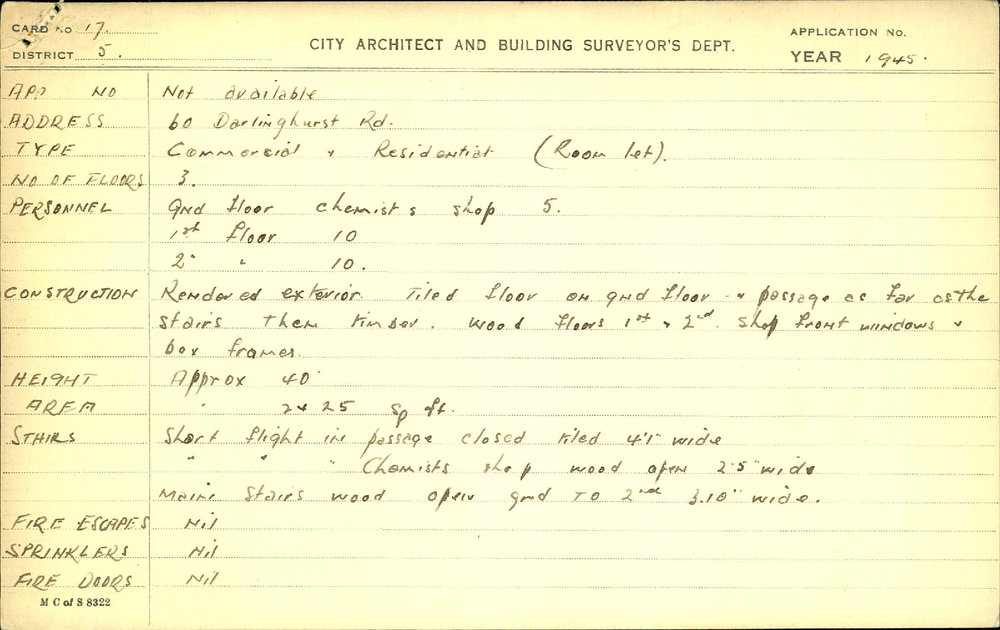 CARD No 17.
DISTRICT 5.
CITY ARCHITECT AND BUILDING SURVEYOR'S DEPT.
APPLICATION No.
YEAR 1945.
APP NO Not available
ADDRESS 60 Darlinghurst Rd.
TYPE Commercial & Residential (Room let).
NO OF FLOORS 3.
PERSONNEL Gnd floor chemists shop 5.
1st floor 10
2" " 10.
CONSTRUCTION Rendered exterior. Tiled floor on gnd floor & passage as far as the
stairs then timber. Wood floors 1st & 2nd. Shop front windows &
box frames.
HEIGHT Approx 40'
AREA " 2425 sq ft.
STAIRS Short flight in passage closed tiled 4'1" wide
" " " Chemists shop wood open 2'5" wide
Main stairs wood open gnd TO 2nd 3.10" wide.
FIRE ESCAPES Nil
SPRINKLERS Nil
FIRE DOORS Nil
M C of S 8322